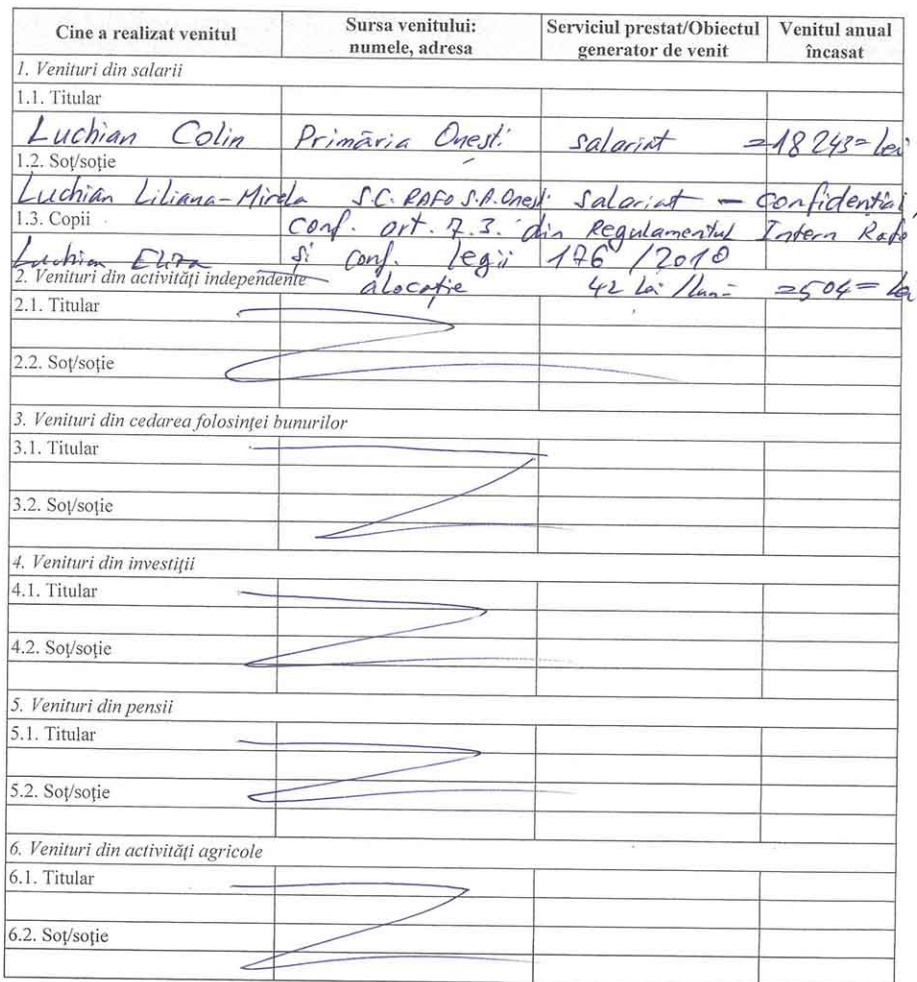 Cine a realizat venitul Sursa venitului: numele, adresa Serviciul prestat/Obiectul generator de venit Venitul anual încasat
1. Venituri din salarii
1.1. Titular
Luchian Colin Primăria Onești salariat =18243= lei
1.2. Soț/soție
Luchian Liliana-Mirela S.C. RAFO S.A. Onești salariat — confidențial,
1.3. Copii conf. art. 7.3. din Regulamentul Intern Rafo
Luchian Eliza și conf. legii 176/2010
2. Venituri din activități independente alocație 42 lei/lună =504= lei
2.1. Titular
2.2. Soț/soție
3. Venituri din cedarea folosinței bunurilor
3.1. Titular
3.2. Soț/soție
4. Venituri din investiții
4.1. Titular
4.2. Soț/soție
5. Venituri din pensii
5.1. Titular
5.2. Soț/soție
6. Venituri din activități agricole
6.1. Titular
6.2. Soț/soție